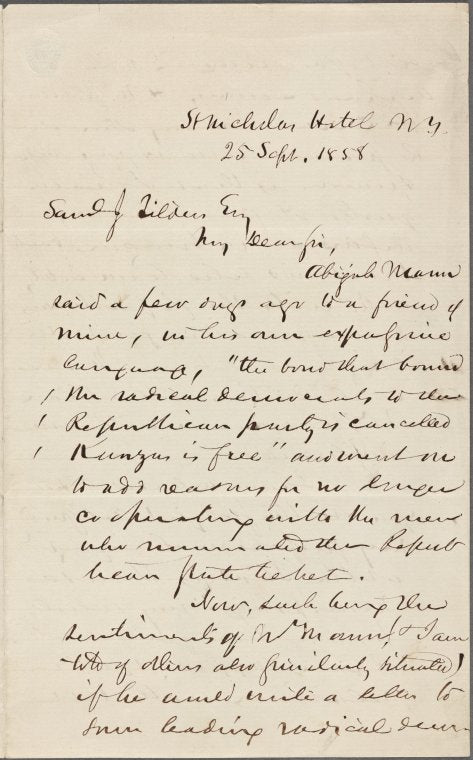 St Nicholas Hotel N.Y.
25 Sept. 1858
Saml J Tilden Esq
My Dear Sir,
Abijah Mann
said a few days ago to a friend of
mine, in his own expressive
language, "the bond that bound
the radical democrats to the
Republican party is cancelled
Kanzas is free" and went on
to add reasons for no longer
cooperating with the men
who nominated the Repub
lican state ticket.
Now, such being the
sentiments of Mr Mann, (& I am
told of others also similarly situated)
if he would write a letter to
some leading radical dem